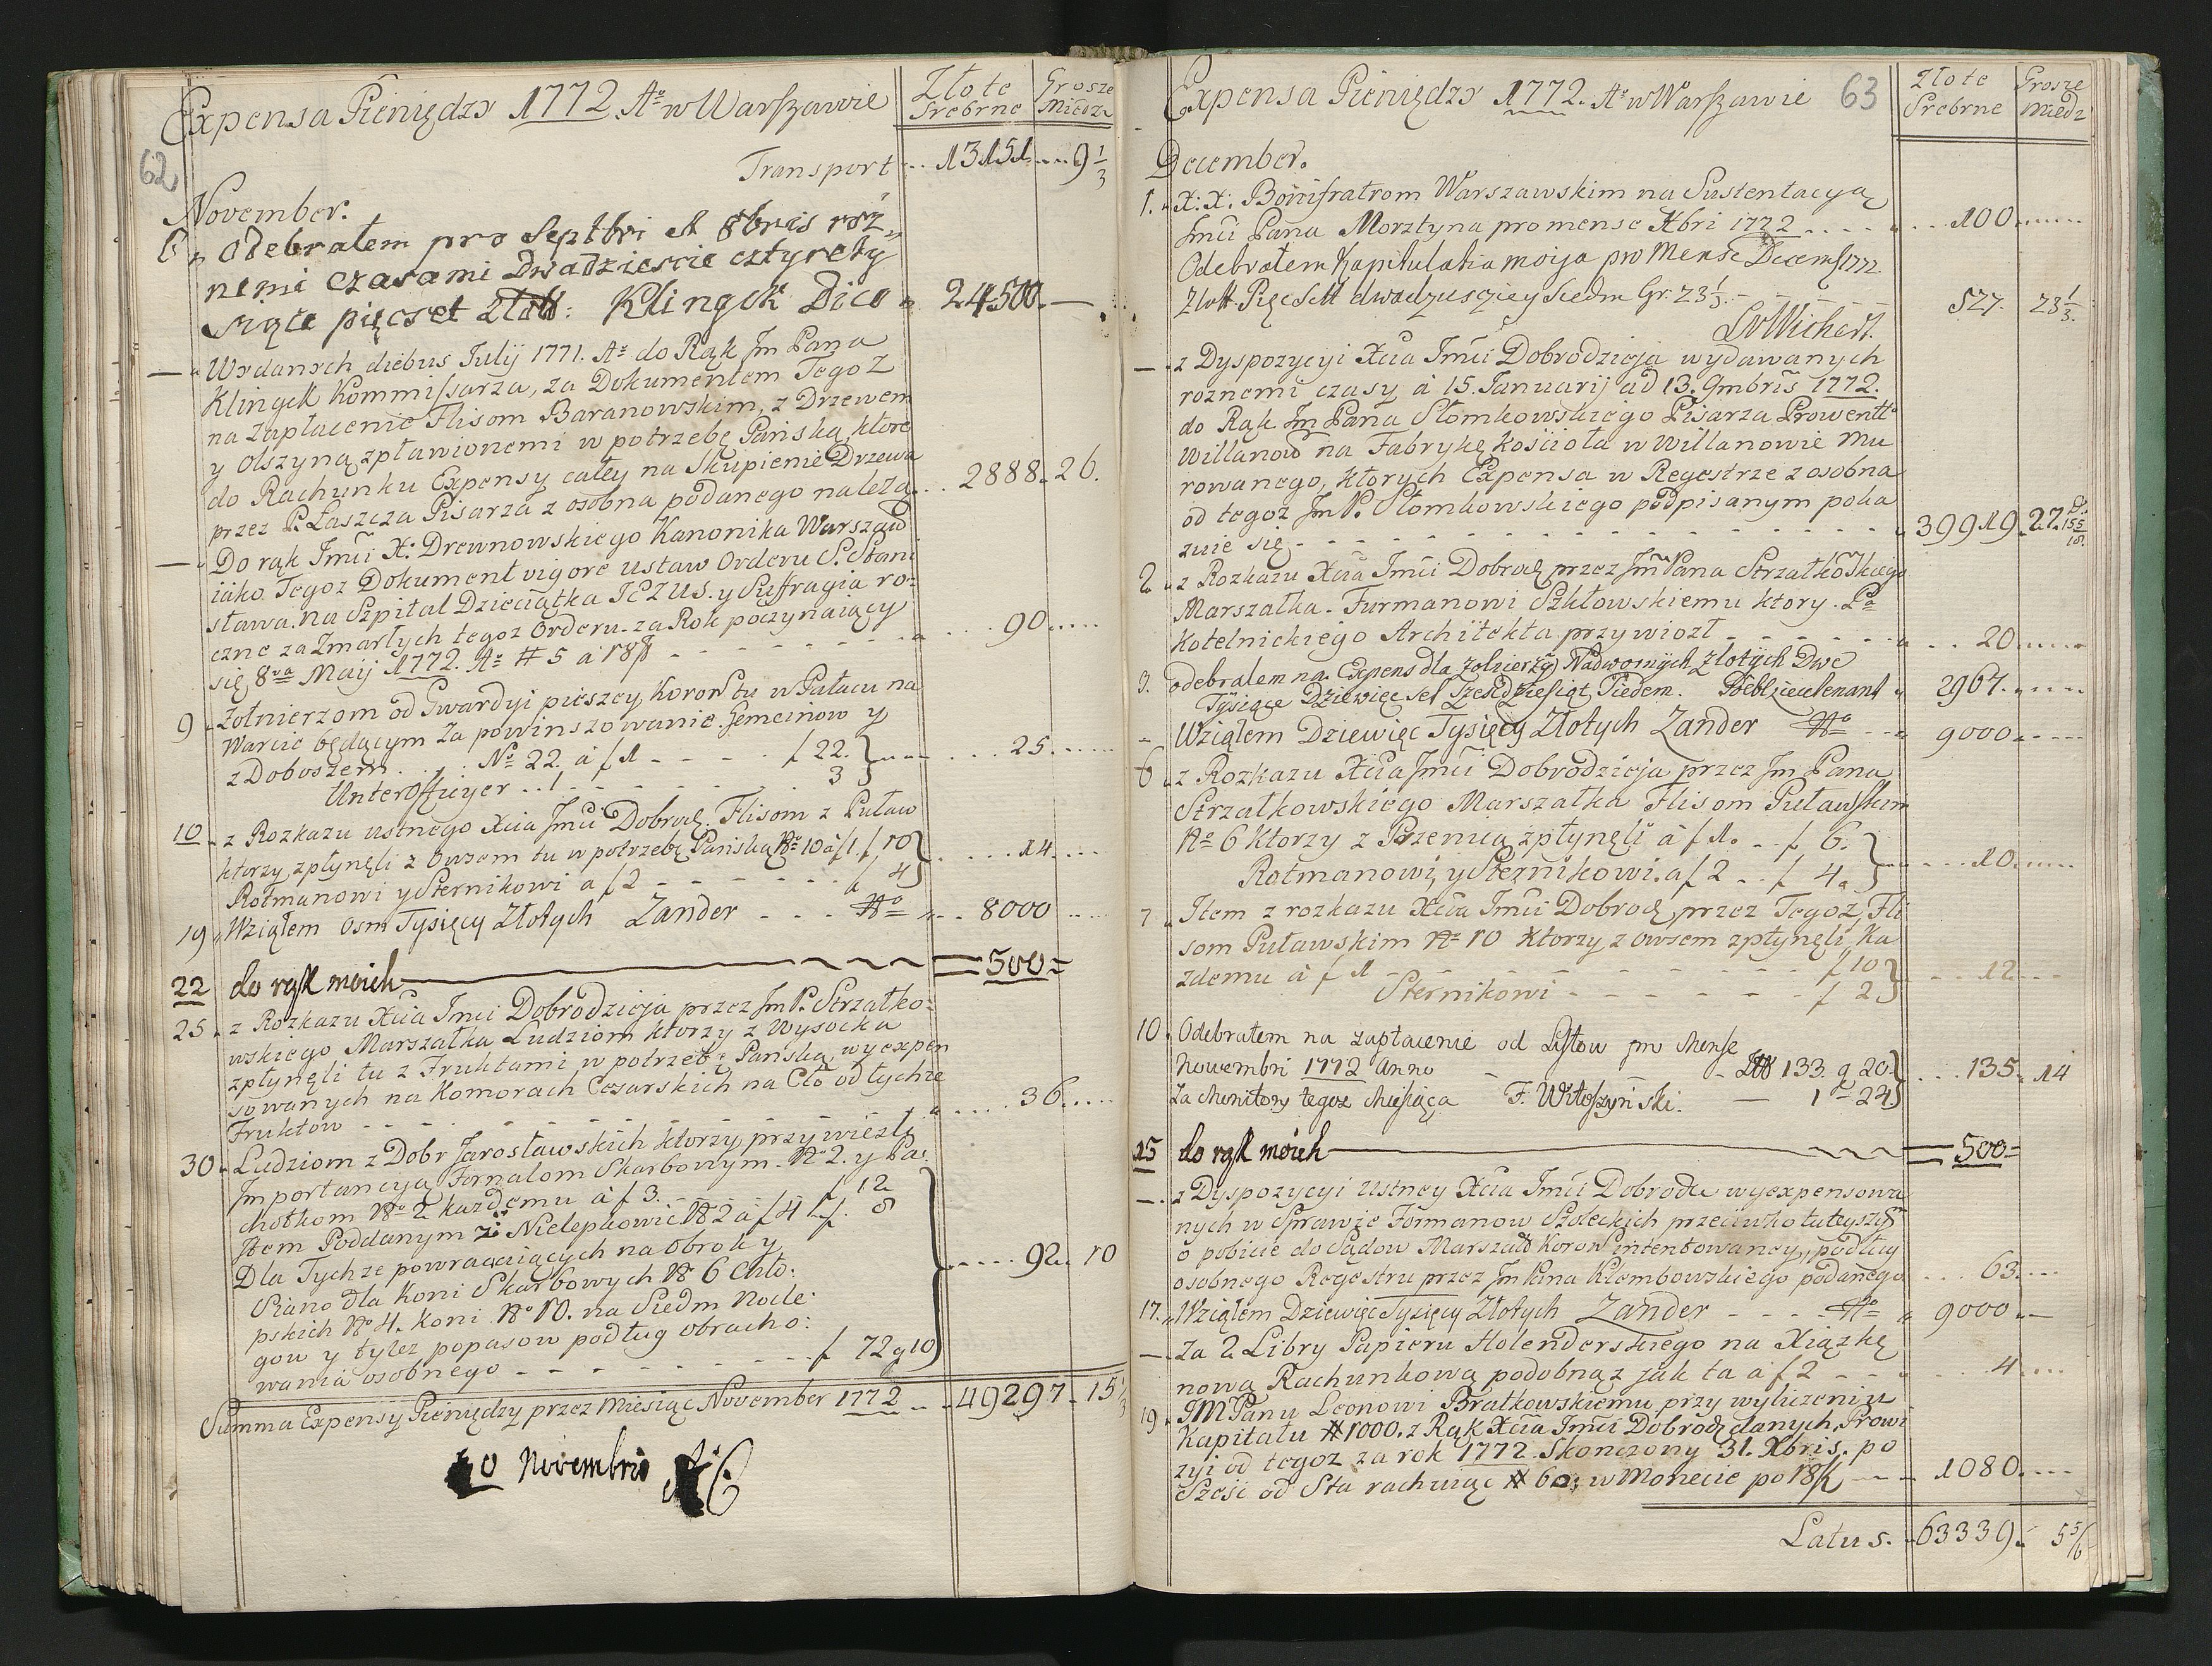 62
Expensa Pieniędzy 1772. Aº w Warszawie
Złote Srebrne
Grosze Miedz:
Transport .. 13151 .. 9 1/3
November.
6 " Odebrałem pro Septbri et 8bris róż„
nemi czasami Dwadzieście cztyreky
siące pięcset Złott: Klingek Dico " 24500. —
— " Wydanych diebus Julij 1771. Aº do Rąk Jm Pana
Klingek Kommissarza, za Dokumentem Tegoż
na zapłacenie Flisom Baranowskim, z Drzewem
y Olszyną zpławionemi w potrzebę Pańską, ktore
do Rachunku Expensy całey na Skupienie Drzewa
przez P. Łaszcza Pisarza z osobna podanego należą .. 2888. 26.
— " Do rąk Jmći X: Drewnowskiego Kanonika Warszaw
iako Tegoż Dokument vigore ustaw Orderu S. Stani
sława. na Szpital Dzieciątka JEZUS. y Suffragia ro:
czne za Zmarłych tegoż Orderu. za Rok poczynaiący
się 8va Maij 1772. Aº # 5 a 18f - - - 90.....
9 " Zołnierzom od Gwardyi pieszey Koron tu w Pałacu na
Warcie będącym Za powinszowanie. Gemeinow y
z Doboszem. . . . Nº 22. à f 1 - - - f 22. } 25.....
Unterofficyer .. 1. - - - - 3
10 " z Rozkazu ustnego Xcia Jmći Dobrodz. Flisom z Puław
ktorzy zpłynęli z Owsem tu w potrzebę Pańską Nº 10 à f1. f 10 } .... 14....
Rotmanowi y Sternikowi a f 2 - - - - - f 4
19 " Wziąłem osm Tysięcy Złotych Zander - - - Nº .. 8000 ....
22 do rąk moich 500=
25 " z Rozkazu Xcia Jmći Dobrodzieja przez Jm P. Strzałko:
wskiego Marszałka Ludziom ktorzy z Wysocka
zpłynęli tu z Fruktami w potrzebę Pańską, wyexpen
sowanych na Komorach Cesarskich na Cło od tychże
Fruktow - - - - - " .... 36.....
30 " Ludziom z Dobr Jarosławskich ktorzy przywiezli
Importancyą Fornalom Skarbowym. Nº 2. y Pa:
chołkom Nº 2 każdemu à f 3. - - - f 12
Item Poddanym z Nielepkowic Nº 2 à f 4 - f. 8
Dla Tychże powracaiących na Obroky
Siano dla Koni Skarbowych Nº 6 Chło:
pskich Nº 4. Koni Nº 10. na Siedm Nocle:
gow y tyleż popasow podług obracho:
wania osobnego - - - - - - f 72 g 10 } ..... 92. 10
Summa Expensy Pieniędzy przez Miesiąc November 1772 .. 49297. 15 1/3
Novembris
63
Expensa Pieniędzy 1772. Aº w Warszawie
Złote Srebrne
Grosze Miedz
December.
1. " X: X: Bonifratrom Warszawskim na Sustentacyą
Jmći Pana Morztyna pro mense Xbri 1772 .... " .. 100.....
Odebrałem Kapitulatia moija pro Mense Decemb 1772
Złott. Pięc Sett dwadzusciey Siedm Gr: 23 1/3. - - - 527. 23 1/3.
Wichert.
— " z Dyspozycyi Xcia Jmći Dobrodzieja wydawanych
roznemi czasy à 15. Januarij ad 13. 9mbris 1772.
do Rąk Jm Pana Słomkowskiego Pisarza Prowentt
Willanow na Fabrykę Kościoła w Willanowie mu
rowanego, ktorych Expensa w Regestrze z osobna
od tegoż Jm P. Słomkowskiego podpisanym poka
zuie się - - - - - - - - " 39919. 27.
2 " z Rozkazu Xcia Jmći Dobrodz przez Jm Pana Strzałkowskiego
Marszałka. Furmanowi Szkłowskiemu ktory. Pª
Kotelnickiego Architekta przywiozł - - - - " .. 20.....
3. odebrałem na Expens dla Zołnierzy Nadwornych złotych Dwe
Tysiące Dziewięć set Szescdziesiąt Siedem. " 2967.....
- Wziąłem Dziewięc Tysięcy Złotych Zander Nº - - " 9000.....
6 " z Rozkazu Xcia Jmći Dobrodzieja przez Jm Pana
Strzałkowskiego Marszałka Flisom Puławskim
Nº 6 Ktorzy z Przemią zpłynęli à f 1. .. f 6. } ..... 10.....
Rotmanowi, y Sternikowi. a f 2 .. f 4.
7 " Item z rozkazu Xcia Jmći Dobrodz przez Tegoż, Fli
som Puławskim Nº 10 Ktorzy z owsem zpłynęli, Ka
zdemu à f 1 - - - - - - - f 10 } .... 12....
Sternikowi - - - - - - f 2
10. Odebrałem na Zapłacenie od Listow pro Mense
Nowembri 1772 Anno - - 133. g 20 } .... 135. 14
Za Monitory tegoż Miesiąca F. Witoszyński. — 1 - 24
15 do rąk moich 500=
— " z Dyspozycyi Ustney Xcia Jmći Dobrodz wyexpensowa
nych w Sprawie Formanow Szoleckich przeciwko tuteyszym
o pobicie do Sądow Marszałk Koron intentowaney, podług
osobnego Regestru przez Jm Pana Kłembowskiego podanego ... 63....
17. " Wziąłem Dziewięc Tysięcy Złotych Zander - - - - Nº " 9000 —
— " Za 2 Libry Papieru Holenderskiego na Xiążkę
nową Rachunkową podobną z jak ta à f 2 - - - 4....
19 " JM Panu Leonowi Bratkowskiemu przy wyliczeniu
Kapitału # 1000. z Rąk Xcia Jmći Dobrodz danych, Prowi
zyi od tegoż za rok 1772. Skonczony 31. Xbris. po
Szesc od Sta rachuiąc # 60; w Monecie po 18f .. 1080....
Latus. 63339. 5 5/6